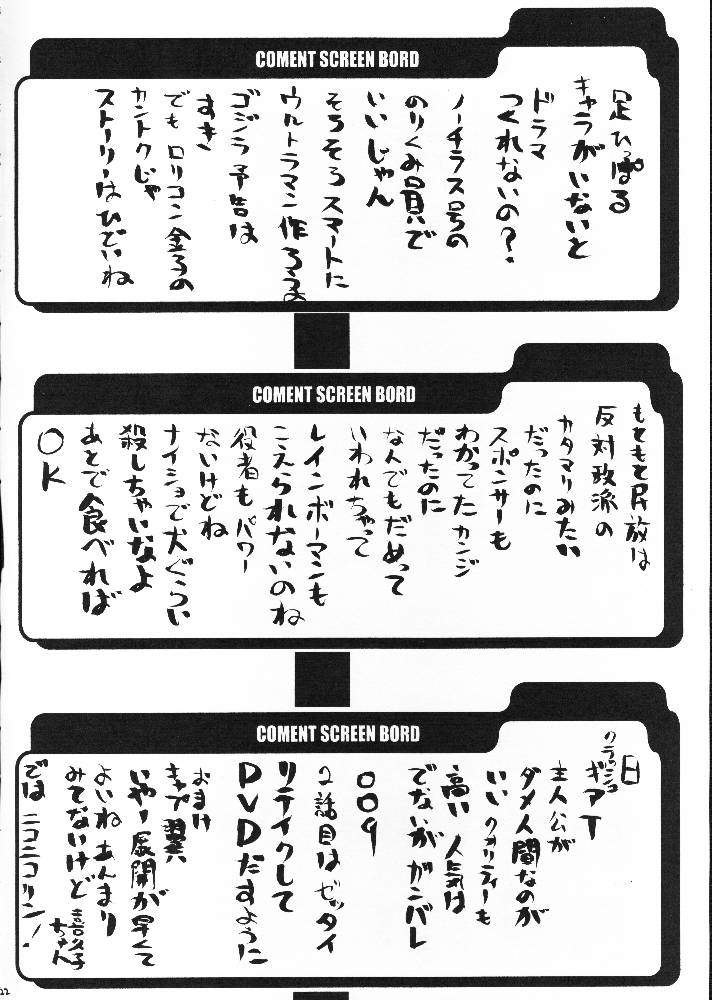 COMENT SCREEN BORD
足ひっぱる
キャラがいないと
ドラマ
つくれないの?
ノーチラス号の
のりくみ員で
いいじゃん
そろそろスマートに
ウルトラマン作ろうよ
ゴジラ予告は
すき、
でもロリコン金子の
カントクじゃ
ストーリーはひどいね
COMENT SCREEN BORD
もともと民放は
反対政派の
カタマリみたい
だったのに
スポンサーも
わかってたカンジ
だったのに
なんでもだめって
いわれちゃって
レインボーマンも
こえられないのね
役者もパワー
ないけどね
ナイショで犬ぐらい
殺しちゃいなよ
あとで食べれば
OK
COMENT SCREEN BORD
日
クラッシュ
ギアT
主人公が
ダメ人間なのが
いいクオリティーも
高い人気は
でないがガンバレ
009
2話目はゼッタイ
リテイクして
DVDだすように
おまけ
キャプ翼
いやー展開が早くて
よいねあんまり
みてないけど喜久子ちゃん
ではニコニコリン!
22